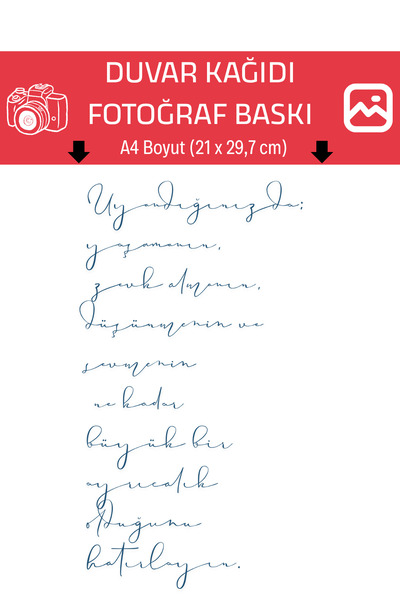 DUVAR KAĞIDI
FOTOĞRAF BASKI
A4 Boyut (21 x 29,7 cm)
Uyandığınızda;
yaşamanın,
zevk almanın,
düşünmenin ve
sevmenin
ne kadar
büyük bir
ayrıcalık
olduğunu
hatırlayın.